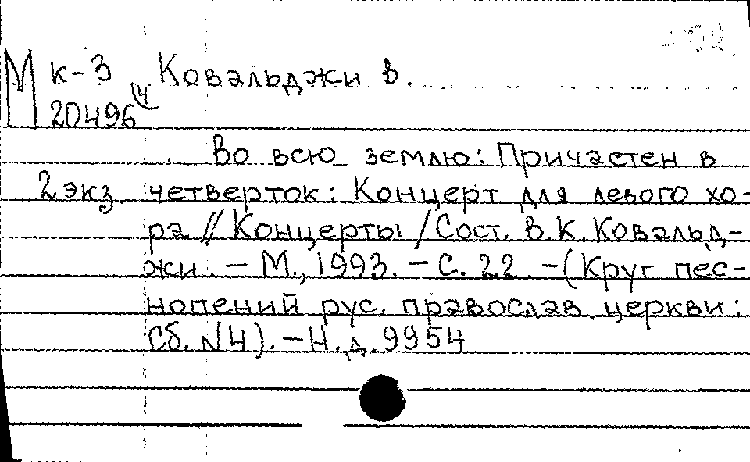 М к-3 Ковальджи В.
20496
Во всю землю: Причастен в
2 экз. четверток: Концерт для левого хо-
ра // Концерты / Сост. В.К. Ковальд-
жи. - М., 1993. - С. 22. - (Круг пес-
нопений рус. православ. церкви:
Сб. N4). - Н.д. 9954